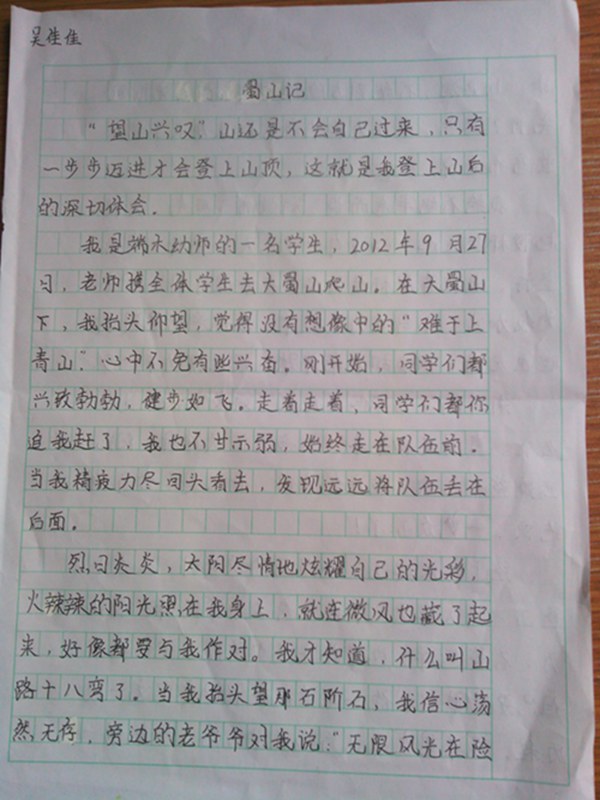 吴佳佳
蜀山记
“望山兴叹”山还是不会自己过来，只有
一步步迈进才会登上山顶，这就是我登上山后
的深切体会．
我是端木幼师的一名学生，2012年9月27
日，老师携全体学生去大蜀山爬山。在大蜀山
下，我抬头仰望，觉得没有想像中的“难于上
青山”心中不免有些兴奋。刚开始，同学们都
兴致勃勃，健步如飞。走着走着，同学们都你
追我赶了，我也不甘示弱，始终走在队伍前．
当我精疲力尽回头看去，发现远远将队伍丢在
后面．
烈日炎炎，太阳尽情地炫耀自己的光彩，
火辣辣的阳光照在我身上，就连微风也藏了起
来，好像都要与我作对。我才知道，什么叫山
路十八弯了。当我抬头望那石阶石，我信心荡
然无存，旁边的老爷爷对我说：“无限风光在险